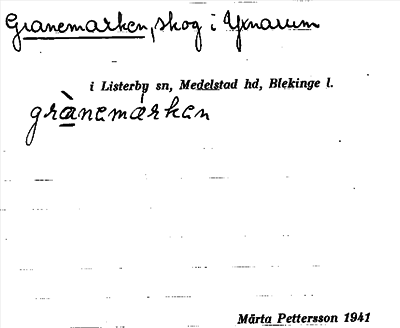 Granemarken, skog i Yxnarum
i Listerby sn, Medelstad hd, Blekinge l.
grànemárken
Märta Pettersson 1941